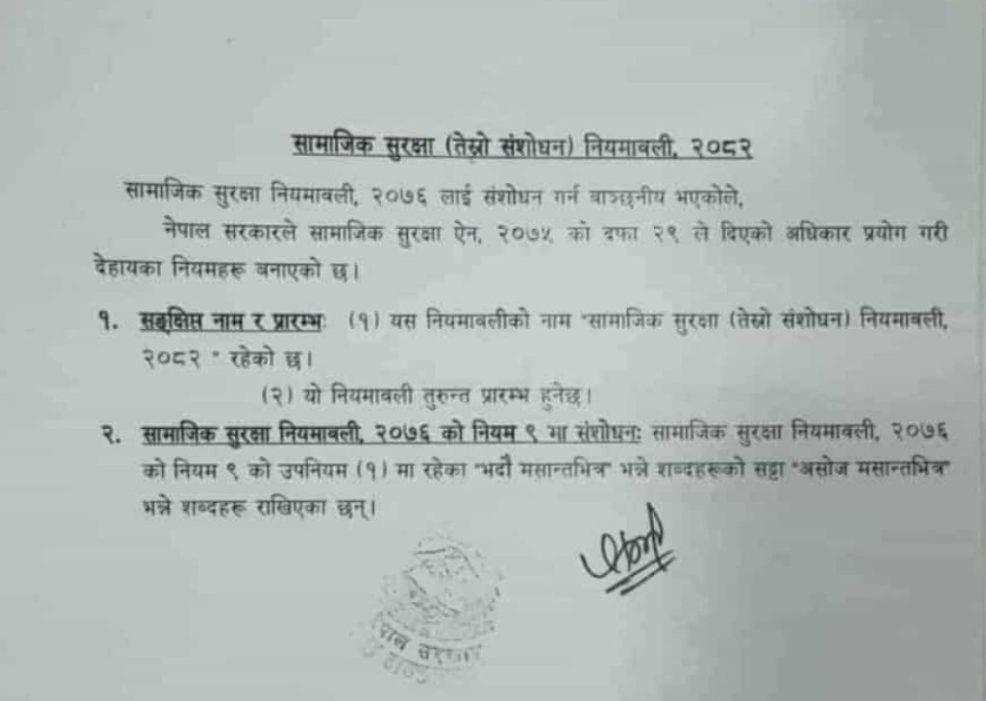 सामाजिक सुरक्षा (तेस्रो संशोधन) नियमावली, २०८२
सामाजिक सुरक्षा नियमावली, २०७६ लाई संशोधन गर्न वाञ्छनीय भएकोले,
नेपाल सरकारले सामाजिक सुरक्षा ऐन, २०७५ को दफा २९ ले दिएको अधिकार प्रयोग गरी
देहायका नियमहरू बनाएको छ।
१. सङ्क्षिप्त नाम र प्रारम्भः (१) यस नियमावलीको नाम "सामाजिक सुरक्षा (तेस्रो संशोधन) नियमावली,
२०८२ " रहेको छ।
(२) यो नियमावली तुरुन्त प्रारम्भ हुनेछ।
२. सामाजिक सुरक्षा नियमावली, २०७६ को नियम ९ मा संशोधनः सामाजिक सुरक्षा नियमावली, २०७६
को नियम ९ को उपनियम (१) मा रहेका "भदौ मसान्तभित्र" भन्ने शब्दहरूको सट्टा "असोज मसान्तभित्र"
भन्ने शब्दहरू राखिएका छन्।
सरकार